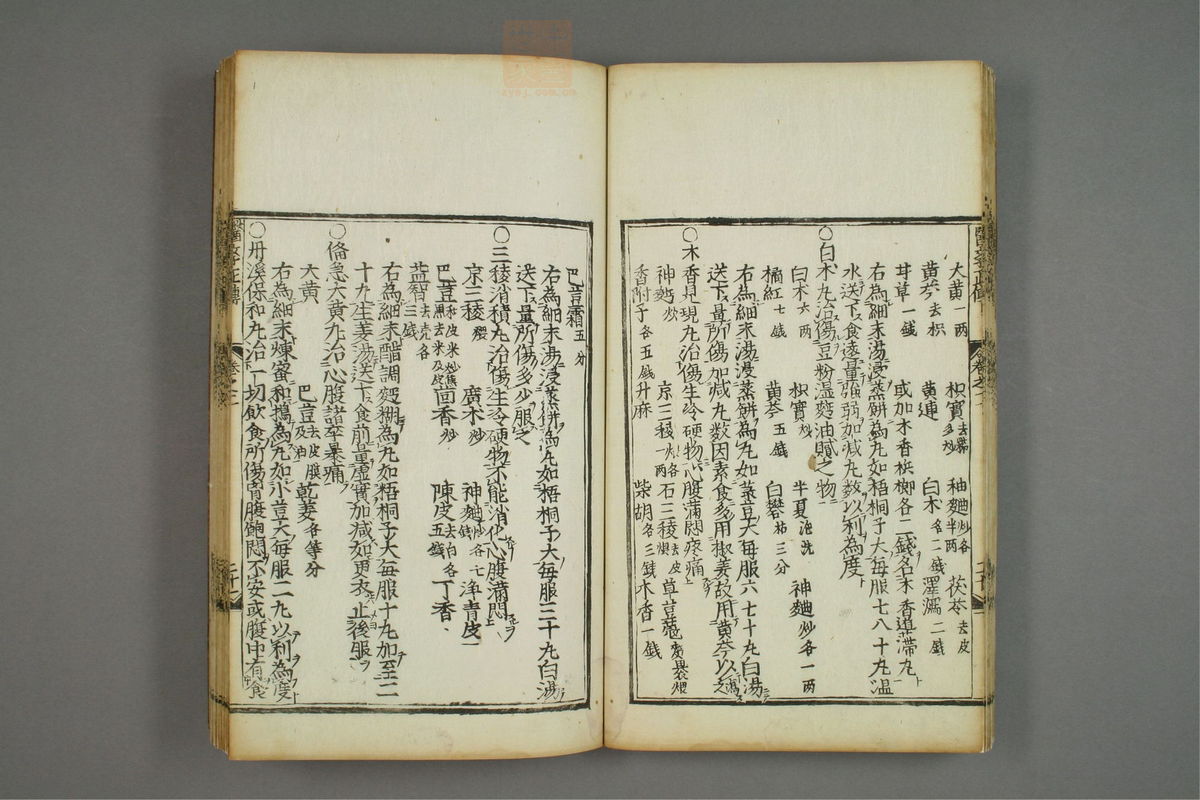 大黄一两 枳實去穰多炒 神麯炒各半两 茯苓去皮
黄芩去枳 黄連 白术各二銭 澤瀉二銭
甘草一銭 或加木香梹榔各二銭名木香道滯丸
右為細末湯浸蒸餅為丸如梧桐子大毎服七八十丸温
水送下食遠量強弱加減丸数以利為度
〇白术丸治傷豆粉湿麪油膩之物
白术六两 枳實炒 半夏泡洗 神麯炒各一两
橘紅七銭 黄芩五銭 白礬枯三分
右為細末湯浸蒸餅為丸如菉豆大毎服六七十丸白湯
送下量所傷加減丸数因素食多用椒姜故用黄芩以瀉之
〇木香見現丸治傷生冷硬物心腹滿悶疼痛
神麯炒 京三稜火各一两 石三稜去皮煨 草豆蔲麪裹煨
香附子各五銭 升麻 柴胡各三銭 木香一銭
巴豆霜五分
右為細末湯浸蒸餅為丸如梧桐子大毎服三十丸白湯
送下量所傷多少服之
〇三稜消積丸治傷生冷硬物不能消化心腹滿悶
京三稜煨 廣朮炒 神麯炒各七銭 淨青皮
巴豆和皮米炒焦黒去米及皮 茴香炒 陳皮去白各五銭 丁香
益智去売各三銭
右為細末醋調麪糊為丸如梧桐子大毎服十丸加至二
十丸生姜湯送下食前量虚實加減如更衣止後服
〇備急大黄丸治心腹諸卒暴痛
大黄 巴豆去皮膜及油 乾姜各等分
右為細末煉蜜和搗為丸如小豆大毎服二丸以利為度
〇丹溪保和丸治一切飲食所傷胃腹飽悶不安或腹中有食